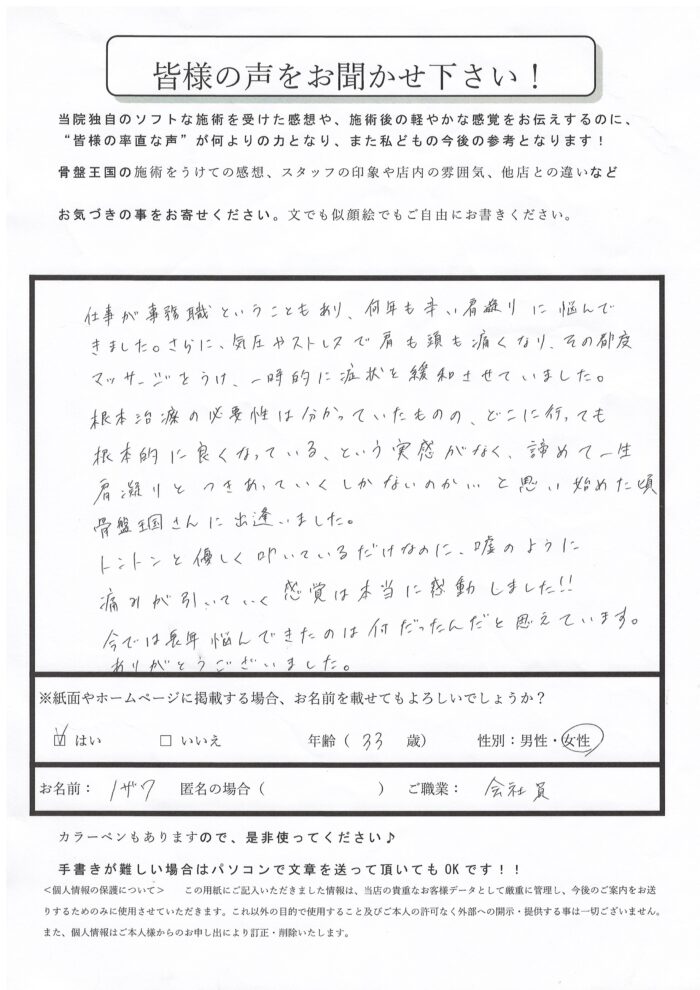 皆様の声をお聞かせ下さい！
当院独自のソフトな施術を受けた感想や、施術後の軽やかな感覚をお伝えするのに、
“皆様の率直な声”が何よりの力となり、また私どもの今後の参考となります！
骨盤王国の施術をうけての感想、スタッフの印象や店内の雰囲気、他店との違いなど
お気づきの事をお寄せください。文でも似顔絵でもご自由にお書きください。
仕事が事務職ということもあり、何年も辛い肩凝りに悩んで
きました。さらに、気圧やストレスで肩も頭も痛くなり、その都度
マッサージをうけ、一時的に症状を緩和させていました。
根本治療の必要性は分かっていたものの、どこに行っても
根本的に良くなっている、という実感がなく、諦めて一生
肩凝りとつきあっていくしかないのか…と思い始めた頃
骨盤王国さんに出逢いました。
トントンと優しく叩いているだけなのに、嘘のように
痛みが引いていく感覚は本当に感動しました!!
今では長年悩んできたのは何だったんだと思えています。
ありがとうございました。
※紙面やホームページに掲載する場合、お名前を載せてもよろしいでしょうか？
☑ はい　□ いいえ　年齢（ 33 歳）　性別：男性・女性
お名前： ノザワ　匿名の場合（　）　ご職業： 会社員
カラーペンもありますので、是非使ってください♪
手書きが難しい場合はパソコンで文章を送って頂いても OK です！！
＜個人情報の保護について＞　この用紙にご記入いただきました情報は、当店の貴重なお客様データとして厳重に管理し、今後のご案内をお送
りするためのみに使用させていただきます。これ以外の目的で使用すること及びご本人の許可なく外部への開示・提供する事は一切ございません。
また、個人情報はご本人様からのお申し出により訂正・削除いたします。